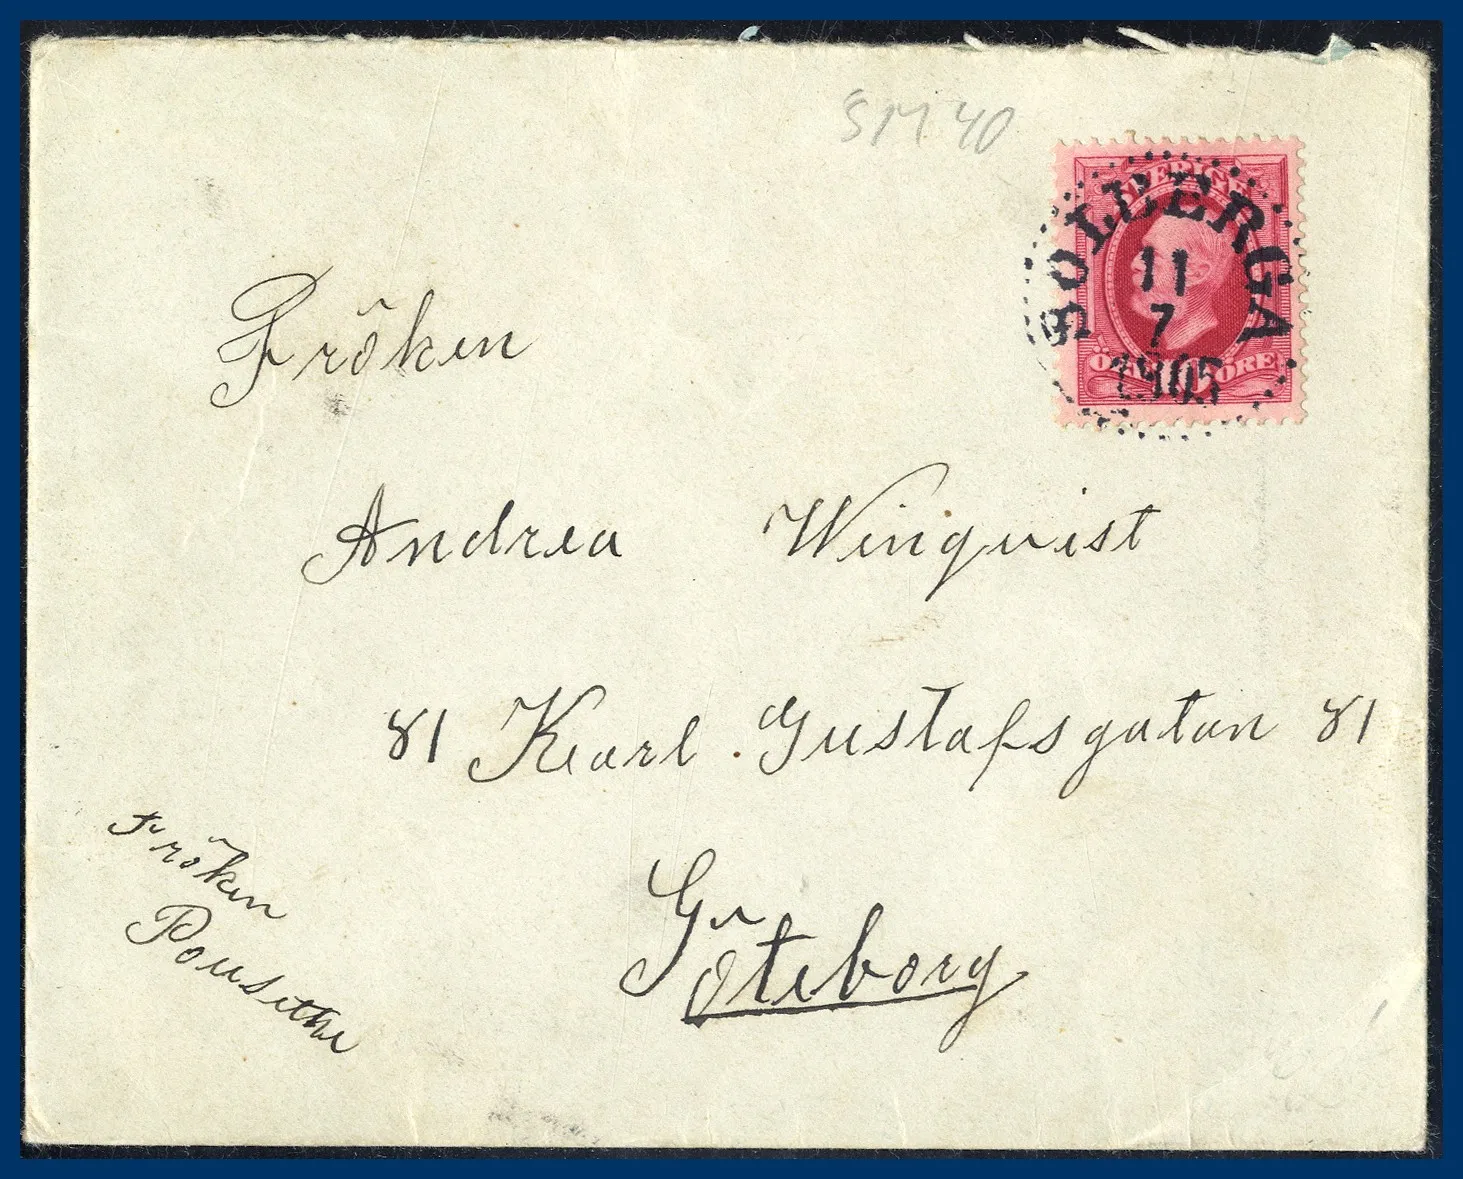 SM 40
SVERIGE
SOLBERGA
11
7
1905
ÖRE
Fröken
Andrea Winqvist
81 Karl Gustafsgatan 81
Göteborg
Fröken
Pousette